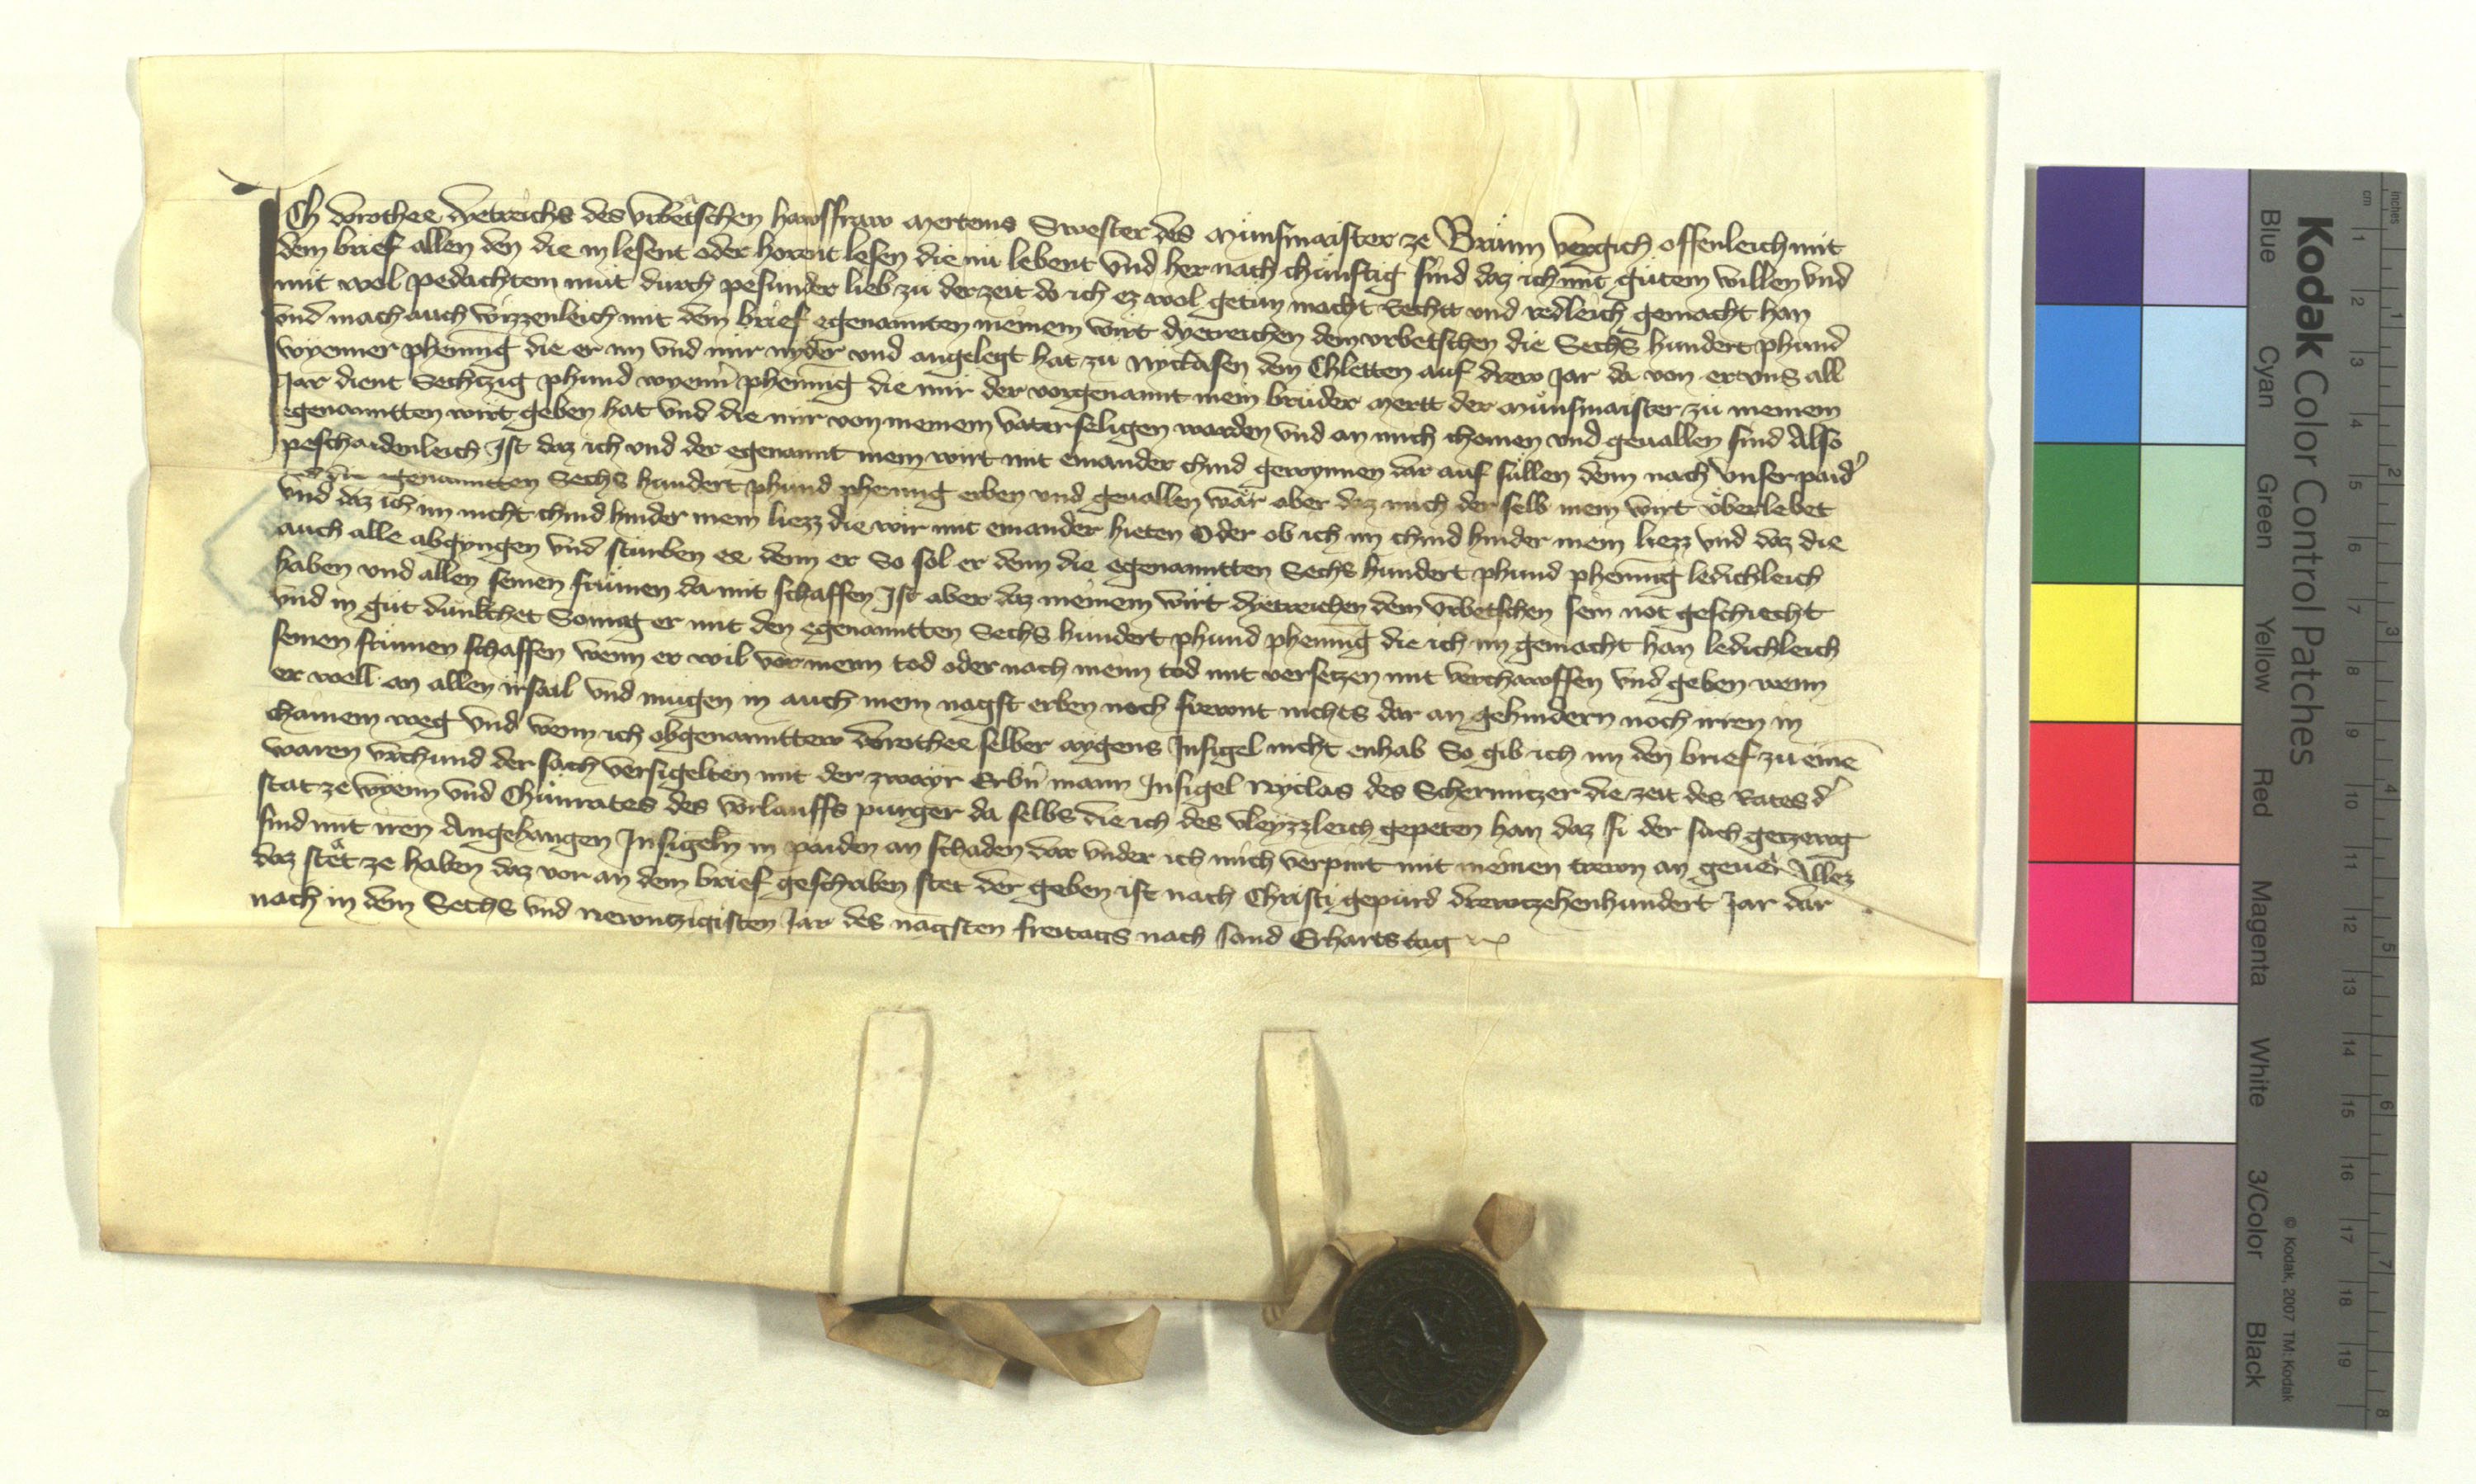 Ich dorothee dyetreichs des vrbetschen hawsfraw mertens Swester des münsmaister ze Brünn vergich offenleich mit
dem brief allen den die in lesent oder horent lesen die nu lebent vnd her nach chünftig sind daz ich mit gütem willen vnd
mit wol pedachtem müt durch pesunder lieb zu der zeit do ich ez wol getün macht Recht vnd redleich gemacht han
vnd mach auch wizzenleich mit dem brief egenannten meinem wirt dyetreichen dem vrbetschen die Sechs hundert phund
wyenner phennig die er im vnd mir nyder vnd angelegt hat zu Nyclasen dem Chletten auf drew Jar da von er vns all
Jar dient Sechtzig phund wyenn phennig die mir der vorgenannt mein brüder Mertt der münsmaister zu meinem
egenanntten wirt geben hat vnd die mir von meinem vater seligen warden vnd an mich chomen vnd geuallen sind Also
peschaidenleich Ist daz ich vnd der egenannt mein wirt mit einander chind gewynnen dar auf sullen denn nach vnser paid
die egenanntten Sechs hundert phund phennig erben vnd geuallen wär aber daz mich der selb mein wirt vberlebet
vnd daz ich im nicht chind hinder mein liezz die wir mit einander hieten Oder ob ich im chind hinder mein liezz vnd daz die
auch alle abgyngen vnd sturben ee denn er So sol er denn die egenanntten Sechs hundert phund phennig ledichleich
haben vnd allen seinen frümen da mit schaffen Ist aber daz meinem wirt dyetreichen dem vrbetschen sein not geschiecht
vnd in gut dunkchet So mag er mit den egenanntten Sechs hundert phund phennig die ich im gemacht han ledichleich
seinen frümen schaffen wenn er wil vor meim tod oder nach meim tod mit versetzen mit verchawffen vnd geben wenn
er well an allen irsaal vnd mügen in auch mein nagst erben noch frewnt nichts dar an gehindern noch irren in
chainem weg vnd wenn ich obgenanttew dorothee selber aygens Insigel nicht enhab So gib ich im den brief zu eine
waren vrchund der sach versigelten mit der zwayr Erbn mann Insigel Nyclas des Schermitzer die zeit des Rates d
stat ze wyenn vnd Chünrates des vorlauffs purger da selbs die ich des vleyzzleich gepeten han daz si der sach getzewg
sind mit iren Angehangen Insigeln in paiden an schaden dar vnder ich mich verpint mit meinen trewn an geuer Allez
daz stet ze haben daz vor an dem brief geschriben stet der geben ist nach Christi gepurd drewtzehenhundert Jar dar
nach in dem Sechs vnd Newntzigisten Jar des nagsten freitags nach sand Erharts tag
Kodak Color Control Patches
Blue
Cyan
Green
Yellow
Red
Magenta
White
3/Color
Black
© Kodak, 2007 TM: Kodak
inches
cm
1 2 3 4 5 6 7 8
1 2 3 4 5 6 7 8 9 10 11 12 13 14 15 16 17 18 19